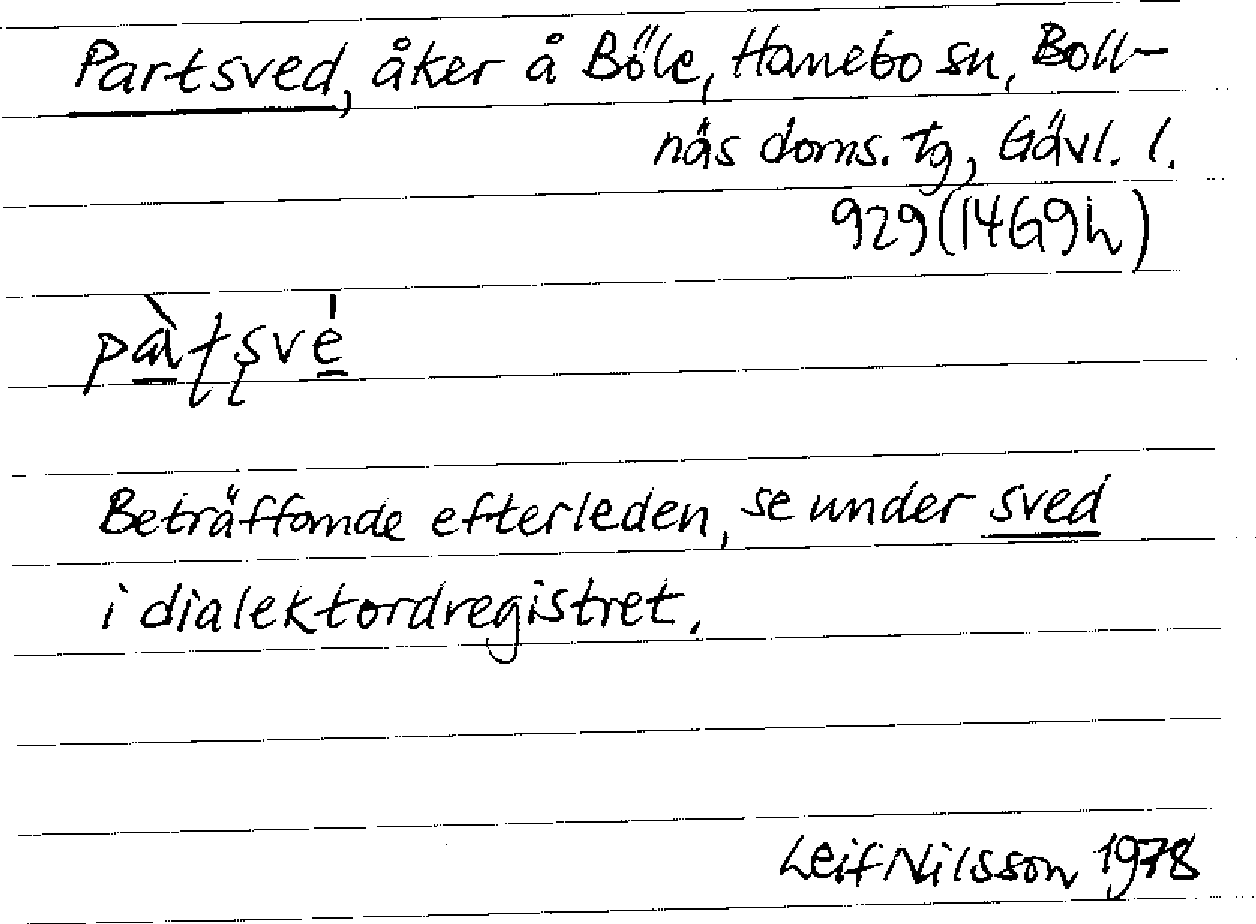 Partsved, åker å Böle, Hanebo sn, Boll-
näs doms. tg, Gävl. l.
929 (14G9h)
Beträffande efterleden, se under sved
i dialektordregistret.
Leif Nilsson 1978